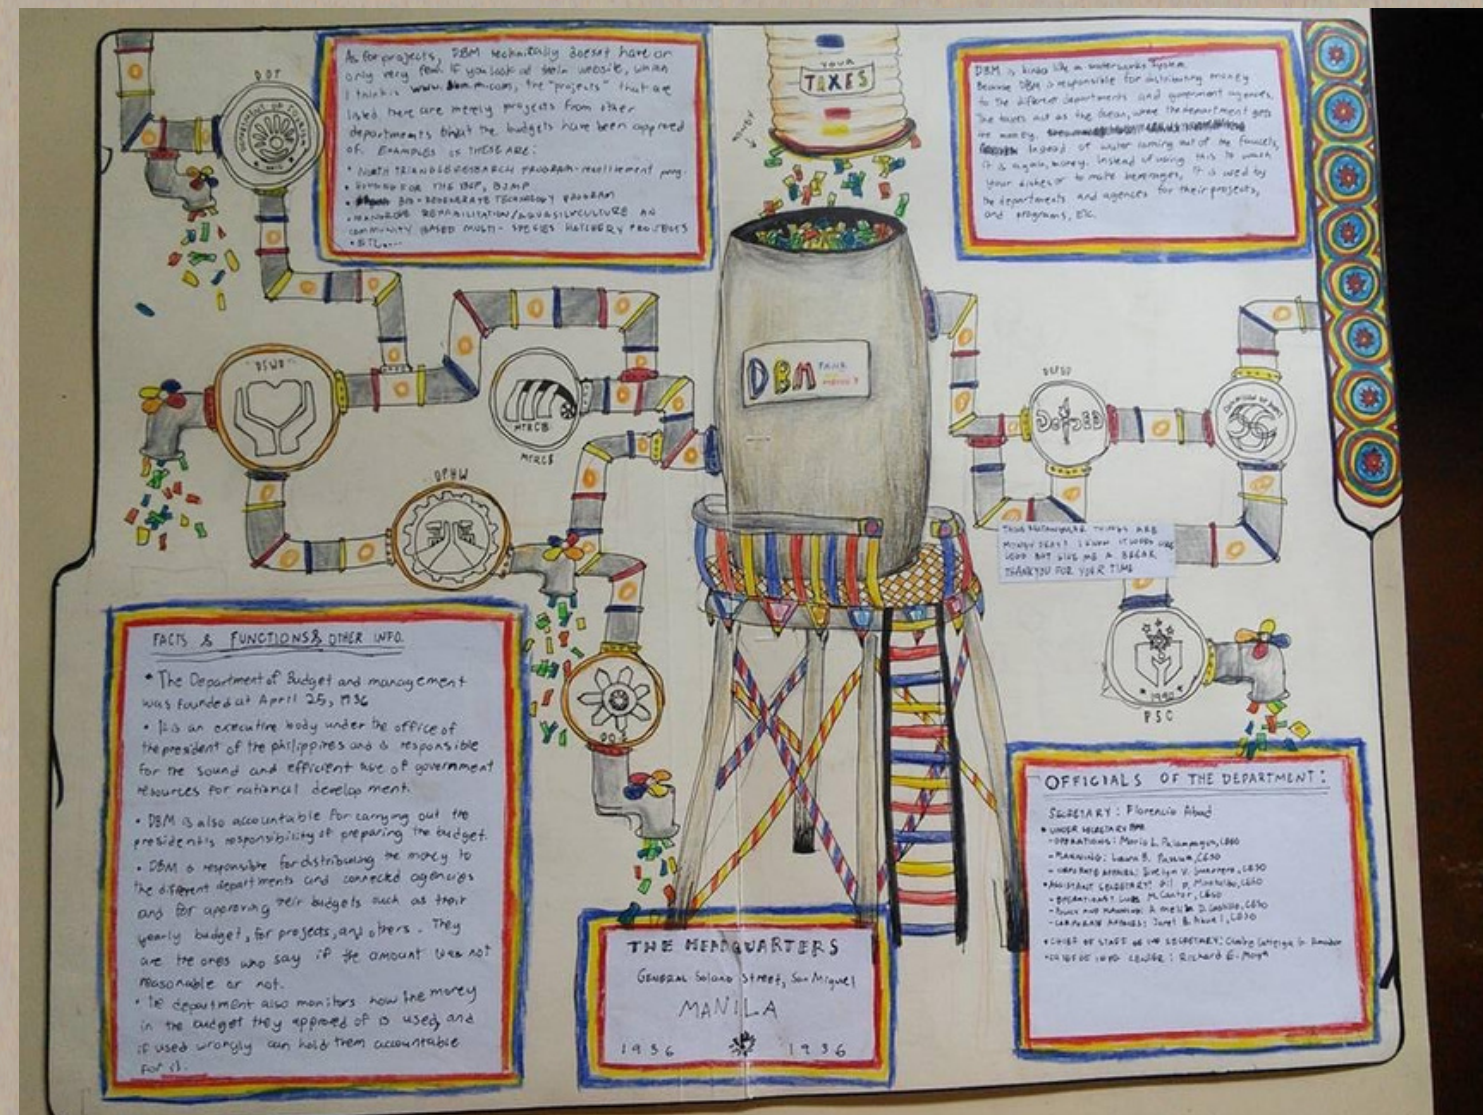 As for projects, DBM technically doesnt have or
only very few. If you look at their website, which
I think is www.dbm.com, the "projects" that are
listed there are merely projects from other
departments that the budgets have been approved
of. EXAMPLES OF THESE ARE:
• NORTH TRIANGLE RESEARCH PROGRAM-resettlement prog.
• FOR THE BFP, BJMP
• BIO-REGENERATE TECHNOLOGY PROGRAM
• MANGROVE REHABILITATION/AQUASILVICULTURE AN
COMMUNITY BASED MULTI-SPECIES HATCHERY PROJECTS
• ETC....
YOUR
TAXES
MONEY
DBM is kinda like a waterworks system.
Because DBM is responsible for distributing money
to the different departments and government agencies,
The taxes act as the ocean, where the department gets
the money. Instead of water coming out of the faucets,
it is again, money. Instead of using this to wash
your dishes or to make beverages, it is used by
the departments and agencies for their projects,
and programs, ETC.
DOT
DEPARTMENT OF TOURISM
"DSWD"
MTRCB
MTRCB
DPHW
DOE
DBM TANK
MONEY
DEPED
DepED
THOSE RECTANGULAR THINGS ARE
MONEY OKAY? I KNOW IT LOOKS LIKE
LEGO BUT GIVE ME A BREAK
THANKYOU FOR YOUR TIME
1990
PSC
FACTS & FUNCTIONS & OTHER INFO.
• The Department of Budget and management
was founded at April 25, 1936
• It is an executive body under the office of
the president of the philippines and is responsible
for the sound and efficient use of government
resources for national development.
• DBM is also accountable for carrying out the
president's responsibility of preparing the budget.
• DBM is responsible for distributing the money to
the different departments and connected agencies
and for approving their budgets such as their
yearly budget, for projects, and others. They
are the ones who say if the amount was not
reasonable or not.
• The department also monitors how the money
in the budget they approved of is used, and
if used wrongly can hold them accountable
for it.
THE HEADQUARTERS
GENERAL Solano Street, San Miguel
MANILA
1936 1936
OFFICIALS OF THE DEPARTMENT:
SECRETARY: Florencio Abad
• UNDER SECRETARY
- OPERATIONS: Mario L. Relampagos, CESO
- PLANNING: Laura B. Pascua, CESO
- CORPORATE AFFAIRS: Evelyn V. Guerrero, CESO
• ASSISTANT SECRETARY: Gil P. Montalbo, CESO
- OPERATIONS: Luz M. Cantor, CESO
- AND PLANNING: Amelita D. Castillo, CESO
- CORPORATE AFFAIRS: Janet B. Abuel, CESO
• CHIEF OF STAFF OF THE SECRETARY:
: Richard E. Moya